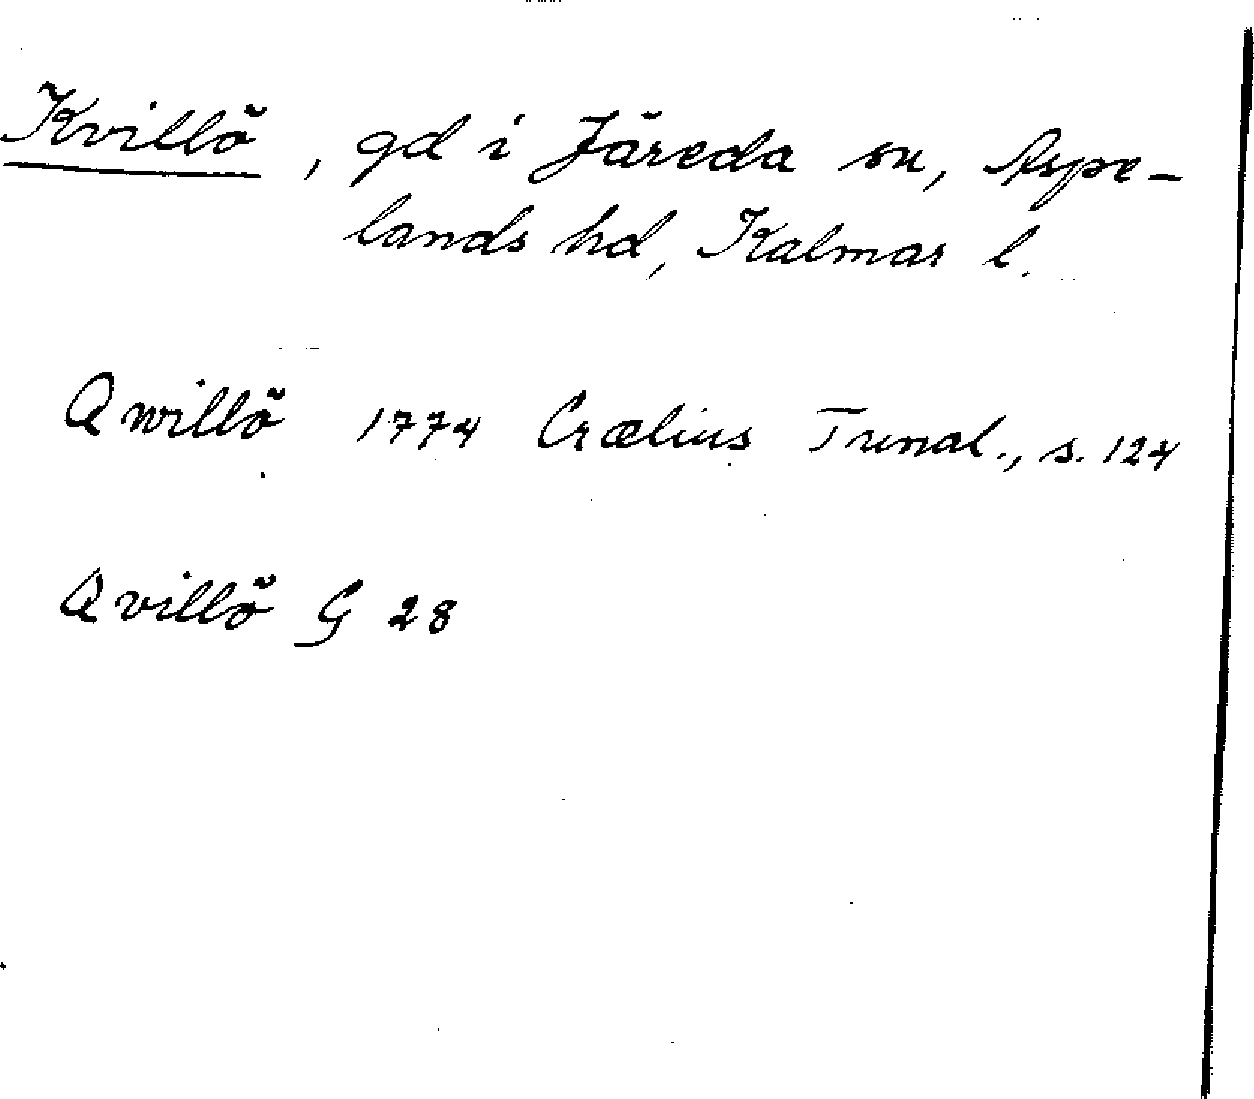 Kvillö, gd i Järeda sn, Aspe-
lands hd, Kalmar l.
Qwillö 1774 Crælius Tunal., s. 124
Qvillö G 28